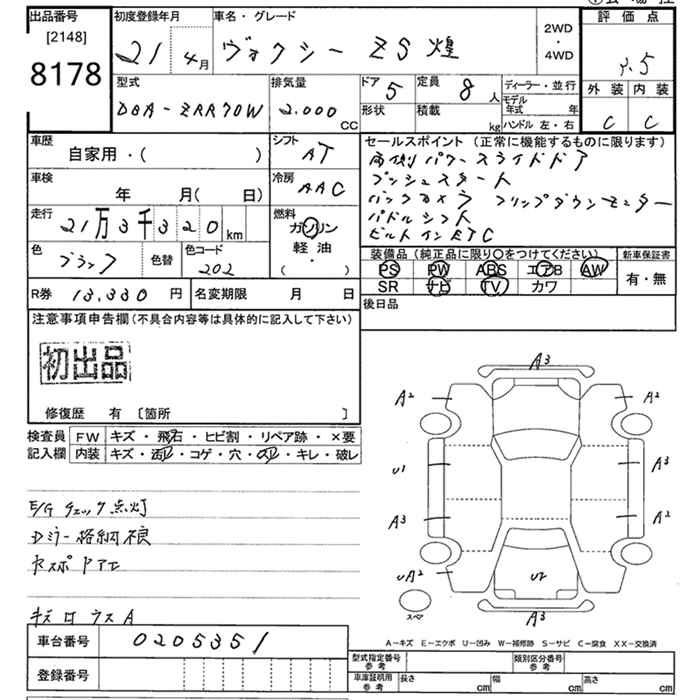 出品番号 初度登録年月 車名・グレード 2WD ・ 4WD 評価点
[2148]
8178
21 4月 ヴォクシー ZS 煌
外装 内装
C C
型式 排気量 ドア 定員 ディーラー・並行
DBA-ZRR70W 2.000 CC 5 8 人
形状 積載 kg
モデル年式 年
ハンドル 左・右
車歴 シフト セールスポイント(正常に機能するものに限ります)
自家用・( ) AT
両側パワースライドドア
プッシュスタート
バックカメラ フリップダウンモニター
パドルシフト
ビルトインETC
車検 冷房
年 月( 日) AAC
走行 燃料
21万3千320 km ガソリン
軽油・
( )
色 色替 色コード
ブラック 202
装備品(純正品に限り○をつけてください) 新車保証書
PS PW ABS エアB AW
SR ナビ TV カワ
有・無
R券 13,330 円 名変期限 月 日
後日品
注意事項申告欄(不具合内容等は具体的に記入して下さい)
初出品
修復歴 有 [箇所 ]
検査員 記入欄
FW キズ・飛石・ヒビ割・リペア跡・×要
内装 キズ・汚レ・コゲ・穴・スレ・キレ・破レ
E/Gチェック点灯
Dミラー格納不良
社外スポドアエ
キズ凹ウスA
A3
A2
A2
U1
A3
A3
A2
UA2
U2
A3
スペア
A-キズ E-エクボ U-凹み W-補修跡 S-サビ C-腐食 XX-交換済
車台番号 0205351
登録番号
型式指定番号 参考 類別区分番号 参考
車庫証明用 参考 長さ cm 幅 cm 高さ cm